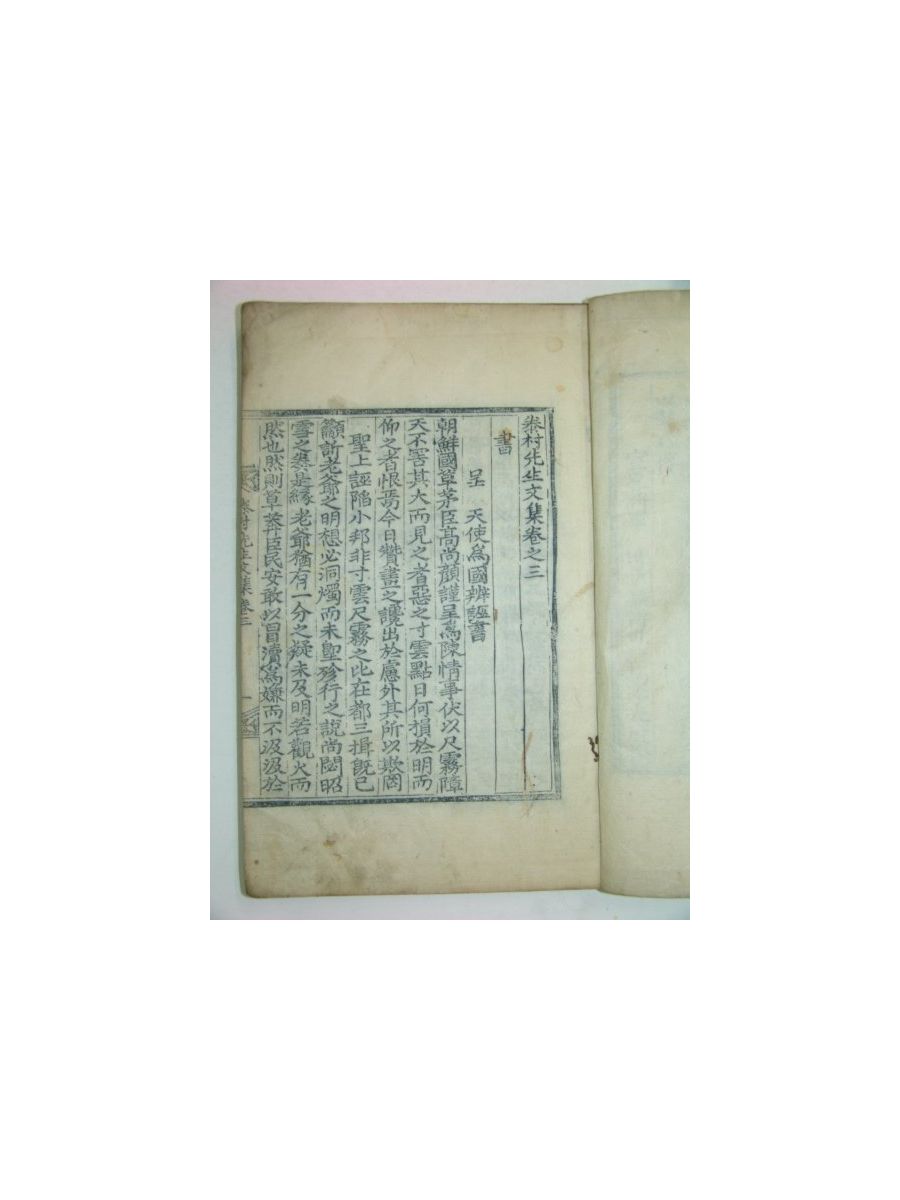 泰村先生文集卷之三
書
呈　天使爲國辨誣書
朝鮮國草茅臣高尚顔謹呈爲陳情事伏以尺霧障
天不害其大而見之者惡之寸雲點日何損於明而
仰之者恨焉今日贊畫之讒出於慮外其所以欺罔
聖上誣陷小邦非寸雲尺霧之比在都三揖旣已
籲訴老爺之明想必洞燭而未卽殄行之說尚閟昭
雪之典是緣　老爺猶有一分之疑未及明若觀火而
然也然則草莽臣民安敢以冒瀆爲嫌而不汲汲於
泰村先生文集卷三　一